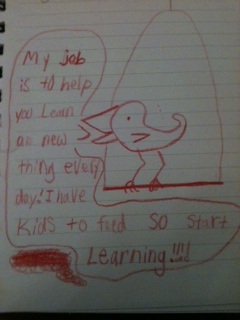 My job
is to help
you Learn
an new
thing every
day! I have
Kids to feed so start
Learning!!!!